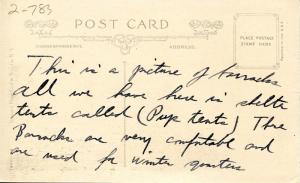 2-783
POST CARD
CORRESPONDENCE. ADDRESS.
PLACE POSTAGE
STAMP HERE
This is a picture of barracks
all we have here is shelter
tents called (Pup tents) These
Barracks are very comfortable and
are used for winter quarters